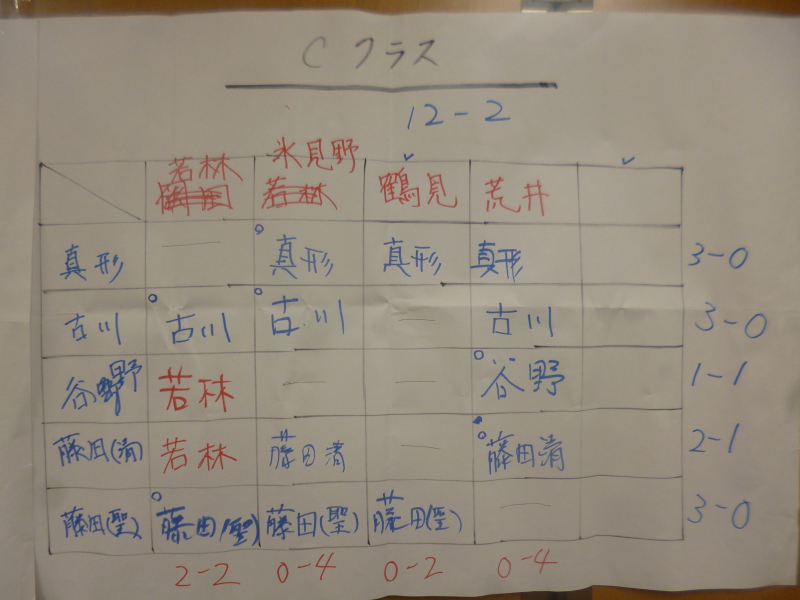 Cクラス
12-2
若林 氷見野
若林 鶴見 荒井
真形 真形 真形 真形 3-0
古川 古川 古川 古川 3-0
谷野 若林 谷野 1-1
藤田(清) 若林 藤田清 藤田清 2-1
藤田(聖) 藤田(聖) 藤田(聖) 藤田(聖) 3-0
2-2 0-4 0-2 0-4